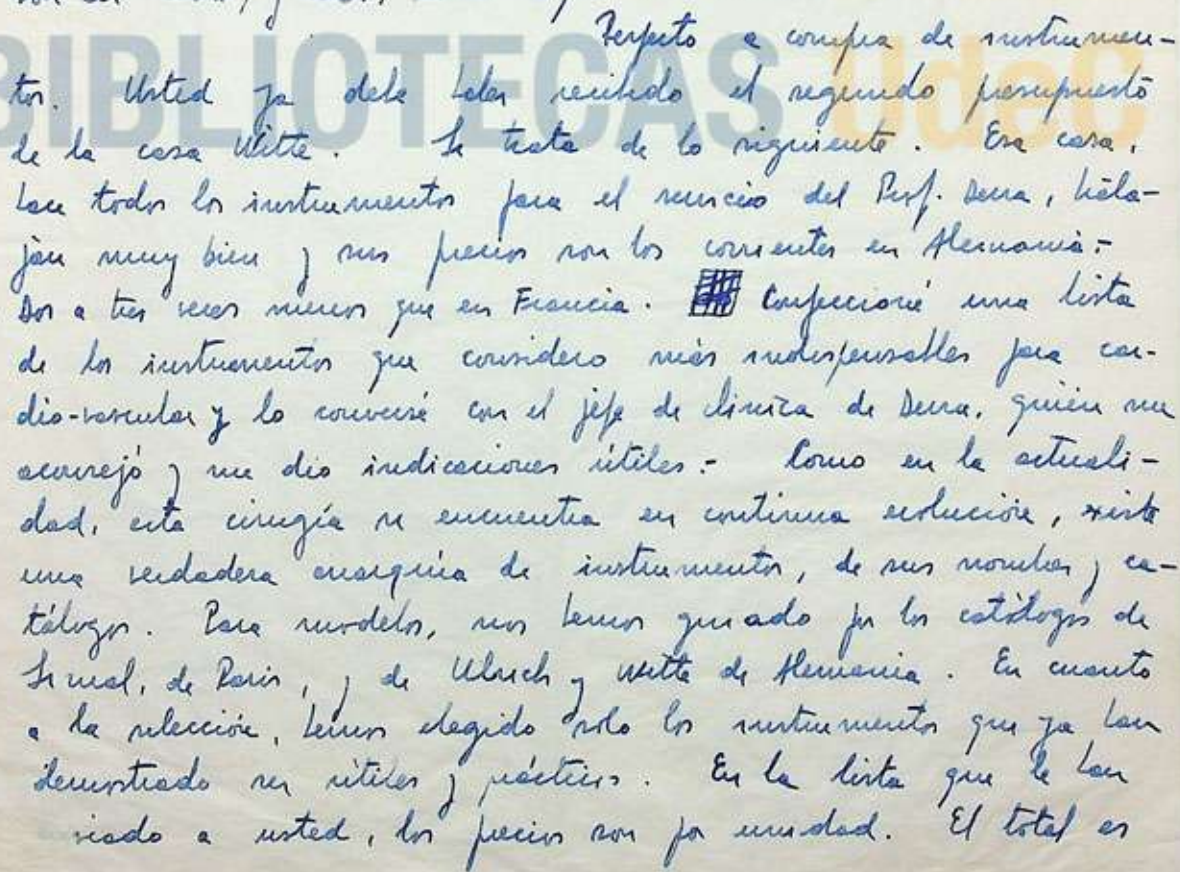 BIBLIOTECAS UdeC
Respecto a compra de instrumen-
tos. Usted ya debe haber recibido el segundo presupuesto
de la casa Witte. Se trata de lo siguiente. Esa casa,
hace todos los instrumentos para el servicio del Prof. Derra, traba-
jan muy bien y sus precios son los corrientes en Alemania.-
Dos a tres veces menos que en Francia. Confeccioné una lista
de los instrumentos que considero más indispensables para car-
dio-vascular y lo conversé con el jefe de clínica de Derra, quién me
aconsejó y me dio indicaciones útiles.- Como en la actuali-
dad, esta cirugía se encuentra en continua evolución, existe
una verdadera anarquía de instrumentos, de sus nombres y ca-
tálogos. Para modelos, nos hemos guiado por los catálogos de
de Paris, y de Ulrich y Witte de Alemania. En cuanto
a la selección, hemos elegido solo los instrumentos que ya han
demostrado ser útiles y prácticos. En la lista que le han
viado a usted, los precios son por unidad. El total es